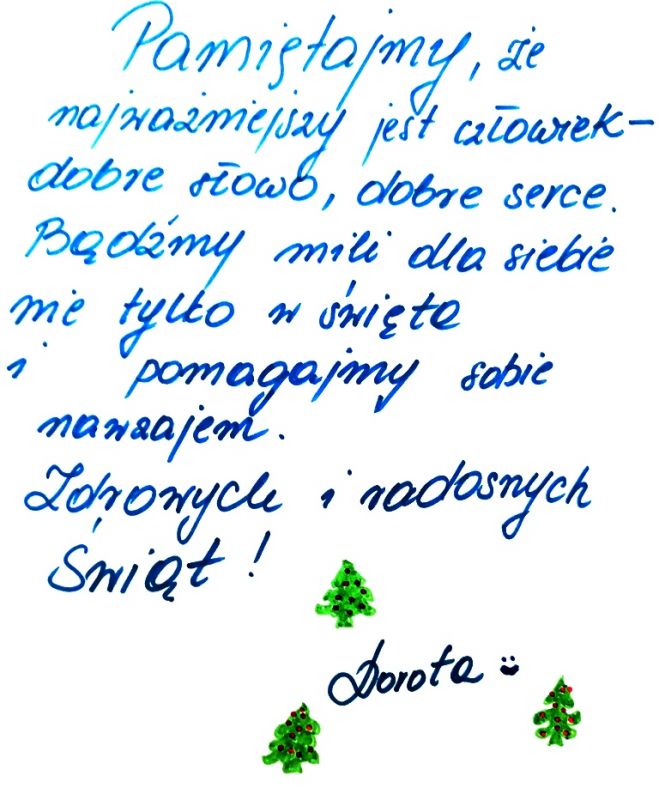 Pamiętajmy, że
najważniejszy jest człowiek-
dobre słowo, dobre serce.
Bądźmy mili dla siebie
nie tylko w święta
i pomagajmy sobie
nawzajem.
Zdrowych i radosnych
Świąt!
Dorota